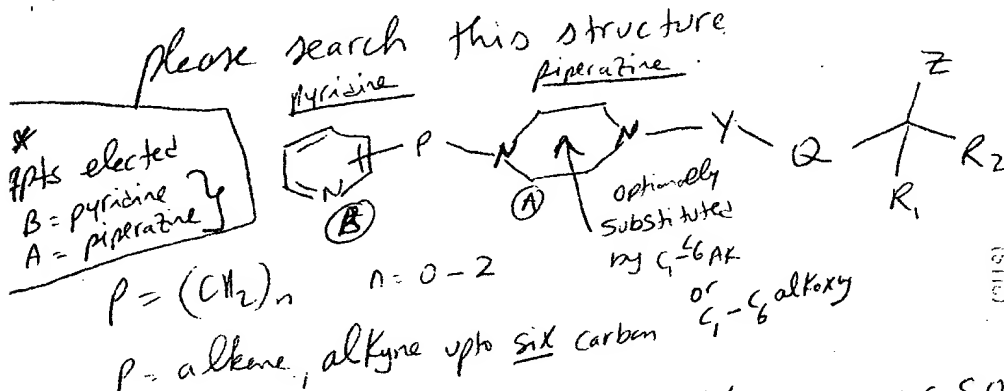 please search this structure
pyridine
piperazine
*
Appts elected
B = pyridine
A = piperazine
N
B
P
N
N
A
Y
Q
Z
R1
R2
optionally
substituted
by C1-C6 AK
or
C1-C6 alkoxy
P = (CH2)n n = 0-2
P = alkene, alkyne upto six carbon